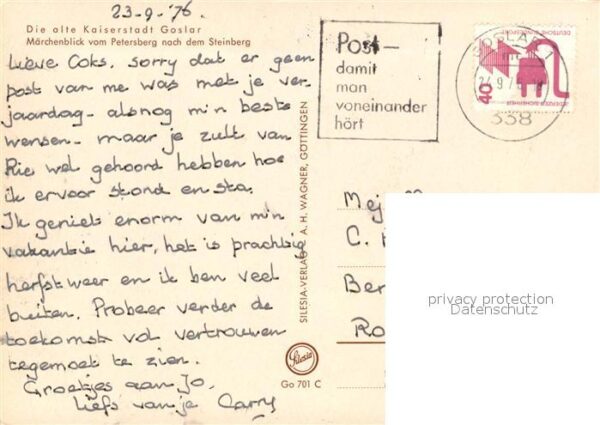 23-9-'76.
Die alte Kaiserstadt Goslar
Märchenblick vom Petersberg nach dem Steinberg
Lieve Coks, sorry dat er geen
post van me was met je ver-
jaardag - alsnog m'n beste
wensen - maar je zult van
Rie wel gehoord hebben hoe
ik ervoor stond en sta.
Ik geniet enorm van m'n
vakantie hier, het is prachtig
herfstweer en ik ben veel
buiten. Probeer verder de
toekomst vol vertrouwen
tegemoet te zien.
Groetjes aan Jo,
liefs van je Carry
Post –
damit
man
voneinander
hört
GOSLAR 1
338
DEUTSCHE BUNDESPOST
40
SILESIA-VERLAG A. H. WAGNER, GÖTTINGEN
Silesia
Go 701 C
Mej.
C.
Ber
Ro
privacy protection
Datenschutz